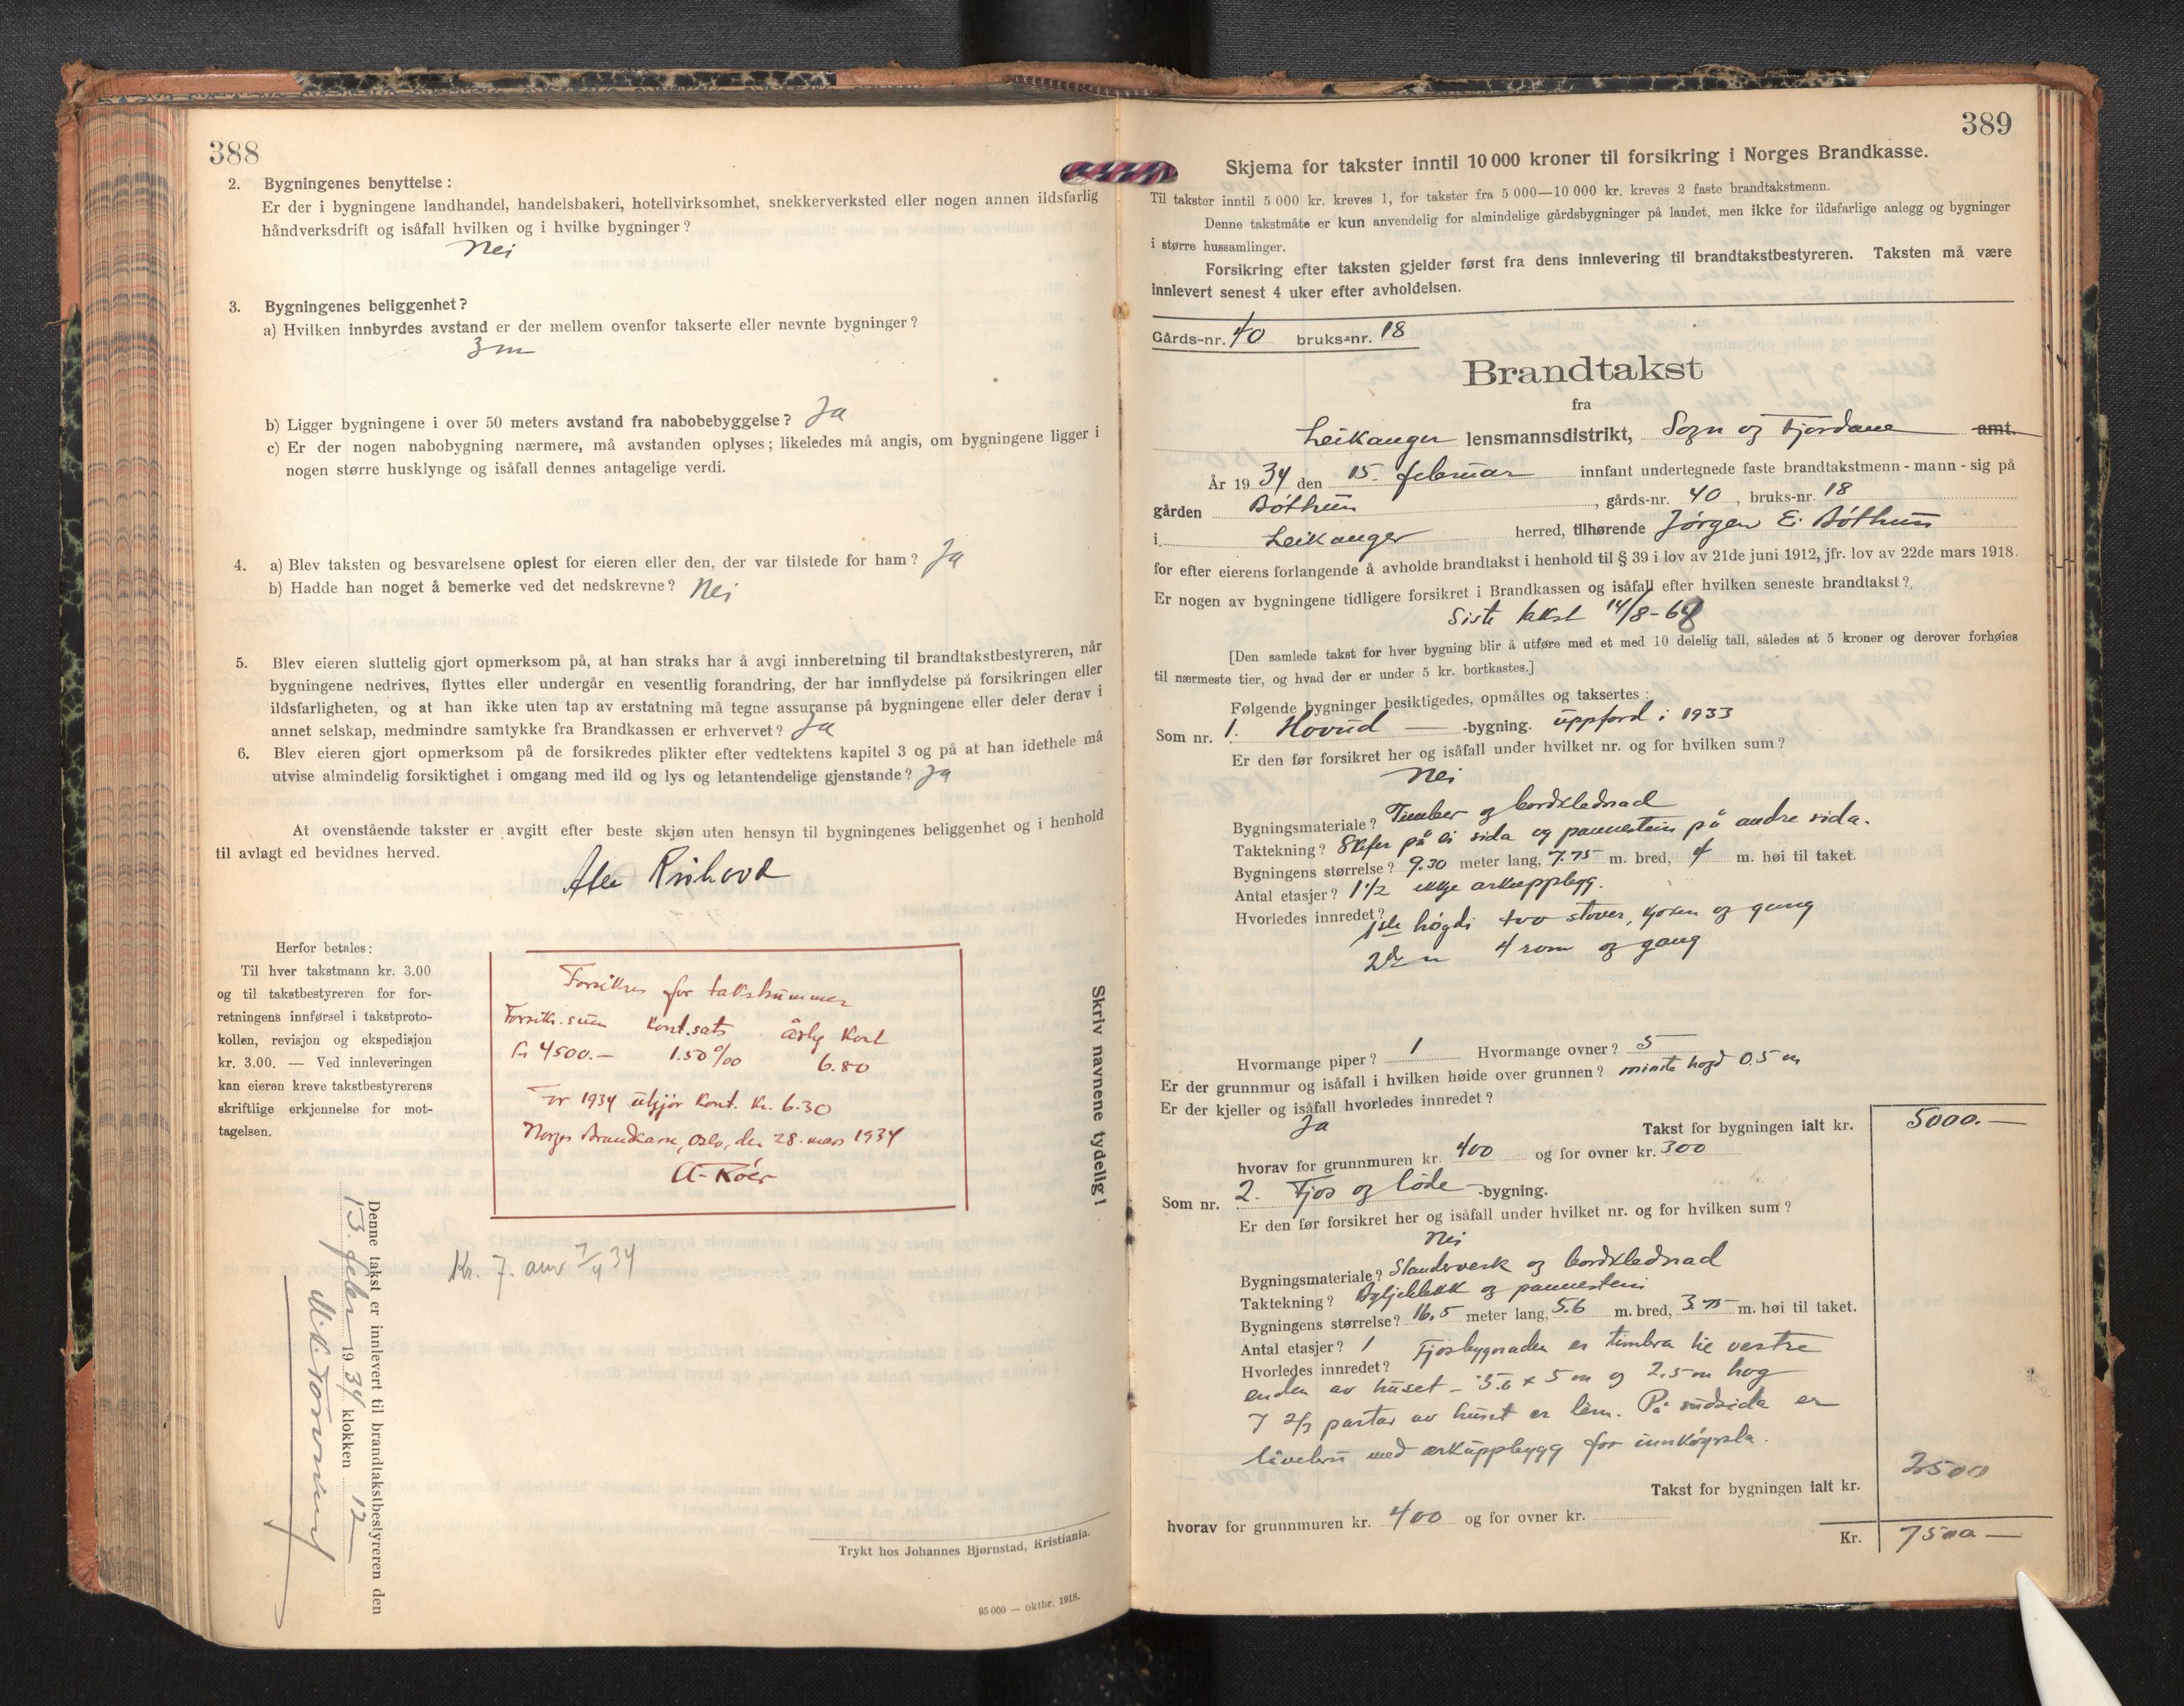 388
2. Bygningenes benyttelse:
Er der i bygningene landhandel, handelsbakeri, hotellvirksomhet, snekkerverksted eller nogen annen ildsfarlig
håndverksdrift og isåfall hvilken og i hvilke bygninger?
Nei
3. Bygningenes beliggenhet?
a) Hvilken innbyrdes avstand er der mellem ovenfor takserte eller nevnte bygninger?
3 m
b) Ligger bygningene i over 50 meters avstand fra nabobebyggelse? Ja
c) Er der nogen nabobygning nærmere, må avstanden oplyses; likeledes må angis, om bygningene ligger i
nogen større husklynge og isåfall dennes antagelige verdi.
4. a) Blev taksten og besvarelsene oplest for eieren eller den, der var tilstede for ham? Ja
b) Hadde han noget å bemerke ved det nedskrevne? Nei
5. Blev eieren sluttelig gjort opmerksom på, at han straks har å avgi innberetning til brandtakstbestyreren, når
bygningene nedrives, flyttes eller undergår en vesentlig forandring, der har innflydelse på forsikringen eller
ildsfarligheten, og at han ikke uten tap av erstatning må tegne assuranse på bygningene eller deler derav i
annet selskap, medmindre samtykke fra Brandkassen er erhvervet? Ja
6. Blev eieren gjort opmerksom på de forsikredes plikter efter vedtektens kapitel 3 og på at han idethele må
utvise almindelig forsiktighet i omgang med ild og lys og letantendelige gjenstande? Ja
At ovenstående takster er avgitt efter beste skjøn uten hensyn til bygningenes beliggenhet og i henhold
til avlagt ed bevidnes herved.
Herfor betales:
Til hver takstmann kr. 3.00
og til takstbestyreren for for-
retningens innførsel i takstproto-
kollen, revisjon og ekspedisjon
kr. 3.00. — Ved innleveringen
kan eieren kreve takstbestyrerens
skriftlige erkjennelse for mot-
tagelsen.
Forsikres for takstsummer
Forsikr.sum Kont.sats årlig Kont
Kr 4500.— 1.50 ‰ 6.80
For 1934 utgjør Kont. Kr. 6.30
Norges Brandkasse, Oslo, den 28. mars 1934
A. Roér
Kr. 7. 7/4 34
Denne takst er innlevert til brandtakstbestyreren den
febr 1934 klokken 12
Skriv navnene tydelig!
Trykt hos Johannes Bjørnstad, Kristiania.
95 000 — oktbr. 1918.
389
Skjema for takster inntil 10 000 kroner til forsikring i Norges Brandkasse.
Til takster inntil 5 000 kr. kreves 1, for takster fra 5 000—10 000 kr. kreves 2 faste brandtakstmenn.
Denne takstmåte er kun anvendelig for almindelige gårdsbygninger på landet, men ikke for ildsfarlige anlegg og bygninger
i større hussamlinger.
Forsikring efter taksten gjelder først fra dens innlevering til brandtakstbestyreren. Taksten må være
innlevert senest 4 uker efter avholdelsen.
Gårds-nr. 40 bruks-nr. 18
Brandtakst
fra
Leikanger lensmannsdistrikt, Sogn og Fjordane amt.
År 1934 den 15. februar innfant undertegnede faste brandtakstmenn - mann - sig på
gården Bøthun, gårds-nr. 40, bruks-nr. 18
i Leikanger herred, tilhørende Jørgen E. Bøthun
for efter eierens forlangende å avholde brandtakst i henhold til § 39 i lov av 21de juni 1912, jfr. lov av 22de mars 1918.
Er nogen av bygningene tidligere forsikret i Brandkassen og isåfall efter hvilken seneste brandtakst?
Siste takst 14/8-68
[Den samlede takst for hver bygning blir å utføre med et med 10 delelig tall, således at 5 kroner og derover forhøies
til nærmeste tier, og hvad der er under 5 kr. bortkastes.]
Følgende bygninger besiktigedes, opmåltes og taksertes:
Som nr. 1. Hovud -bygning. uppførd i 1933
Er den før forsikret her og isåfall under hvilket nr. og for hvilken sum?
Nei
Bygningsmateriale? Timber og bordklednad
Taktekning? Skifer på ei sida og pannestein på andre sida.
Bygningens størrelse? 9.30 meter lang, 7.75 m. bred, 4 m. høi til taket.
Antal etasjer? 1 1/2 ikkje arkuppbygg.
Hvorledes innredet? 1ste høgdi tvo stover, kjøken og gang
2dre " 4 rom og gang
Hvormange piper? 1 Hvormange ovner? 5
Er der grunnmur og isåfall i hvilken høide over grunnen? minste høgd 0.5 m
Er der kjeller og isåfall hvorledes innredet?
Ja
Takst for bygningen ialt kr. 5000.—
hvorav for grunnmuren kr. 400 og for ovner kr. 300
Som nr. 2. Fjos og løde -bygning.
Er den før forsikret her og isåfall under hvilket nr. og for hvilken sum?
Nei
Bygningsmateriale? Standerverk og bordklednad
Taktekning? Bylgjeblekk og pannestein
Bygningens størrelse? 16.5 meter lang, 5.6 m. bred, 3.75 m. høi til taket.
Antal etasjer? 1
Hvorledes innredet? Fjosbygnaden er timbra i vestre
enden av huset - 5.6 x 5 m og 2.5 m høg
I 2/3 partar av huset er lem. På sudsida er
låvebru med arkuppbygg for innkøyrsla.
Takst for bygningen ialt kr. 2500
hvorav for grunnmuren kr. 400 og for ovner kr.
Kr. 7500—